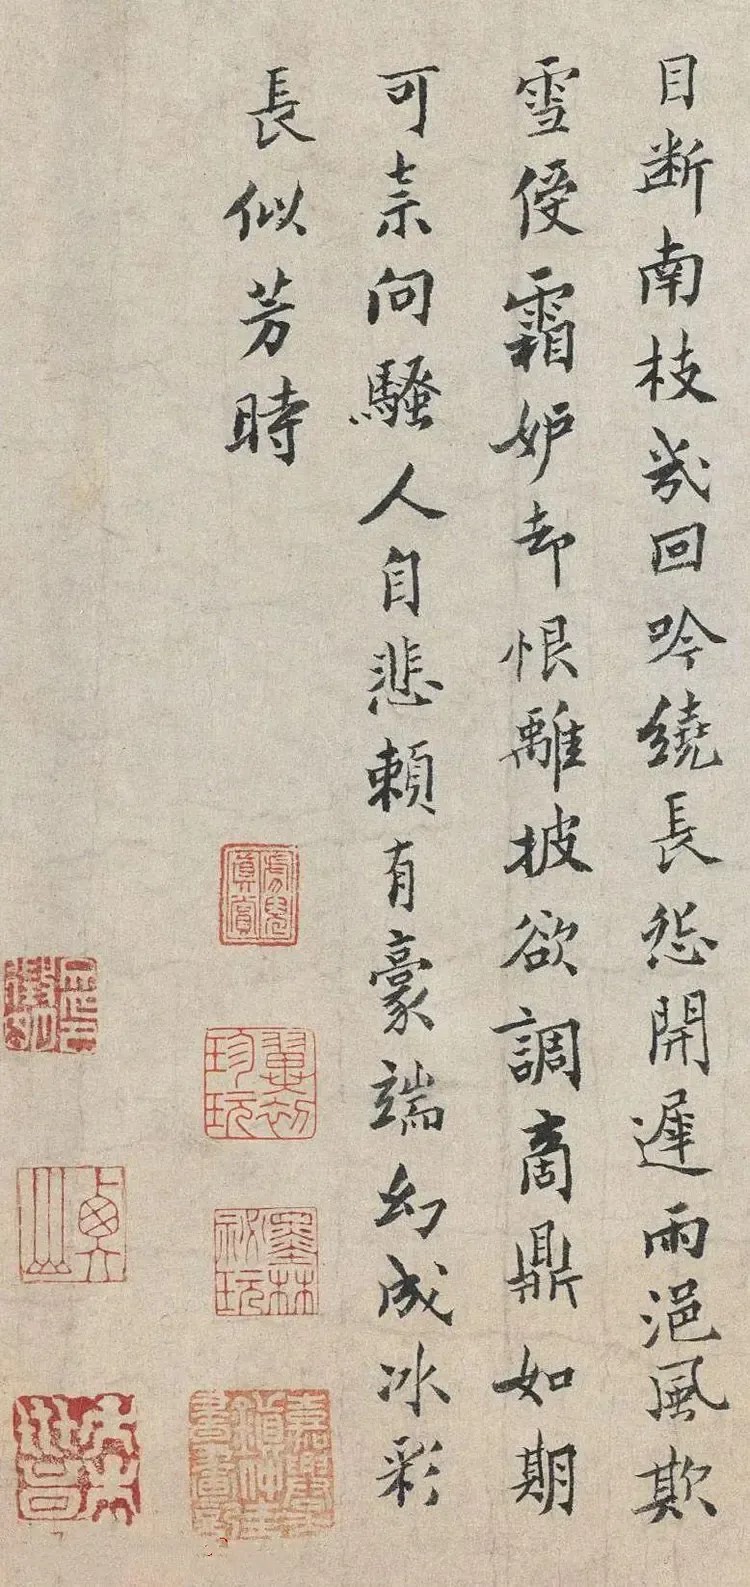 目断南枝幾回吟繞長怨開遲雨浥風欺
雪侵霜妒却恨離披欲調商鼎如期
可柰向騷人自悲賴有豪端幻成冰彩
長似芳時
墨林祕玩